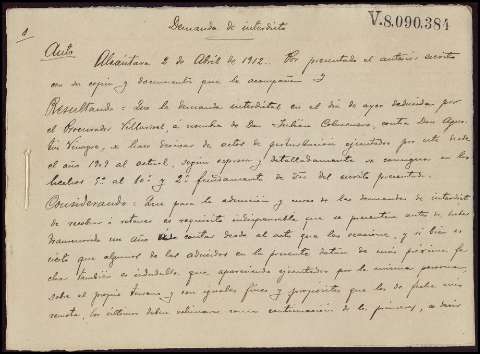 1
Demanda de interdicto
V.8.090.384
Auto
Alcántara 2 de Abril de 1912.. Por presentado el anterior escrito
con su copia y documento que le acompaña
Resultando: Que la demanda interdictal en el dia de ayer deducida por
el Procurador Villarroel, á nombre de Don Julián, contra Don
, se hace derivar de actos de perturbación ejecutados por este desde
el año 1909 al actual, según expresa y detalladamente se consignan en los
hechos 5º al 10º y 2º fundamento de dro del escrito presentado.
Considerando: Que para la admisión y curso de las demandas de interdicto
de recobrar ó retener es requisito indispensable que se presenten antes de haber
transcurrido un año contar desde el acto que las ocasione, y si bien es
cierto que algunos de los aducidos en la presente datan de más próxima fe
cha también es indudable que apareciendo ejecutados por la misma persona,
sobre el propio terreno y con iguales fines y propósitos que los de fecha más
remota, los últimos deben estimarse como continuación de los primeros, es decir